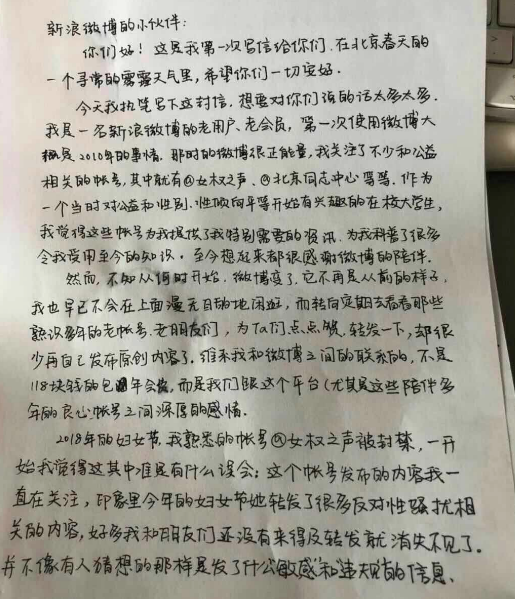 新浪微博的小伙伴:
你们好! 这是我第一次写信给你们, 在北京春天的
一个寻常的雾霾天气里, 希望你们一切安好.
今天我执笔写下这封信, 想要对你们说的话太多太多.
我是一名新浪微博的老用户、老会员, 第一次使用微博大
概是2010年的事情. 那时的微博很正能量, 我关注了不少和公益
相关的帐号, 其中就有@女权之声、@北京同志中心 等等. 作为
一个当时对公益和性别、性倾向平等开始有兴趣的在校大学生,
我觉得这些帐号为我提供了我特别需要的资讯, 为我科普了很多
令我受用至今的知识. 至今想起来都很感谢微博的陪伴.
然而, 不知从何时开始, 微博变了, 它不再是从前的样子,
我也早已不会在上面漫无目的地闲逛, 而转向定期去看看那些
熟识多年的老帐号、老朋友们, 为Ta们点点赞、转发一下, 却很
少再自己发布原创内容了. 维系我和微博之间的联系的, 不是
118块钱的包年会员, 而是我们跟这个平台(尤其是这些陪伴多
年的良心帐号之间深厚的感情.
2018年的妇女节, 我熟悉的帐号@女权之声被封禁, 一开
始我觉得这其中准是有什么误会: 这个帐号发布的内容我一
直在关注, 印象里今年的妇女节她转发了很多反对性骚扰相
关的内容, 好多我和朋友们还没有来得及转发就消失不见了.
并不像有人猜想的那样是发了什么"敏感"和"违规"的信息.